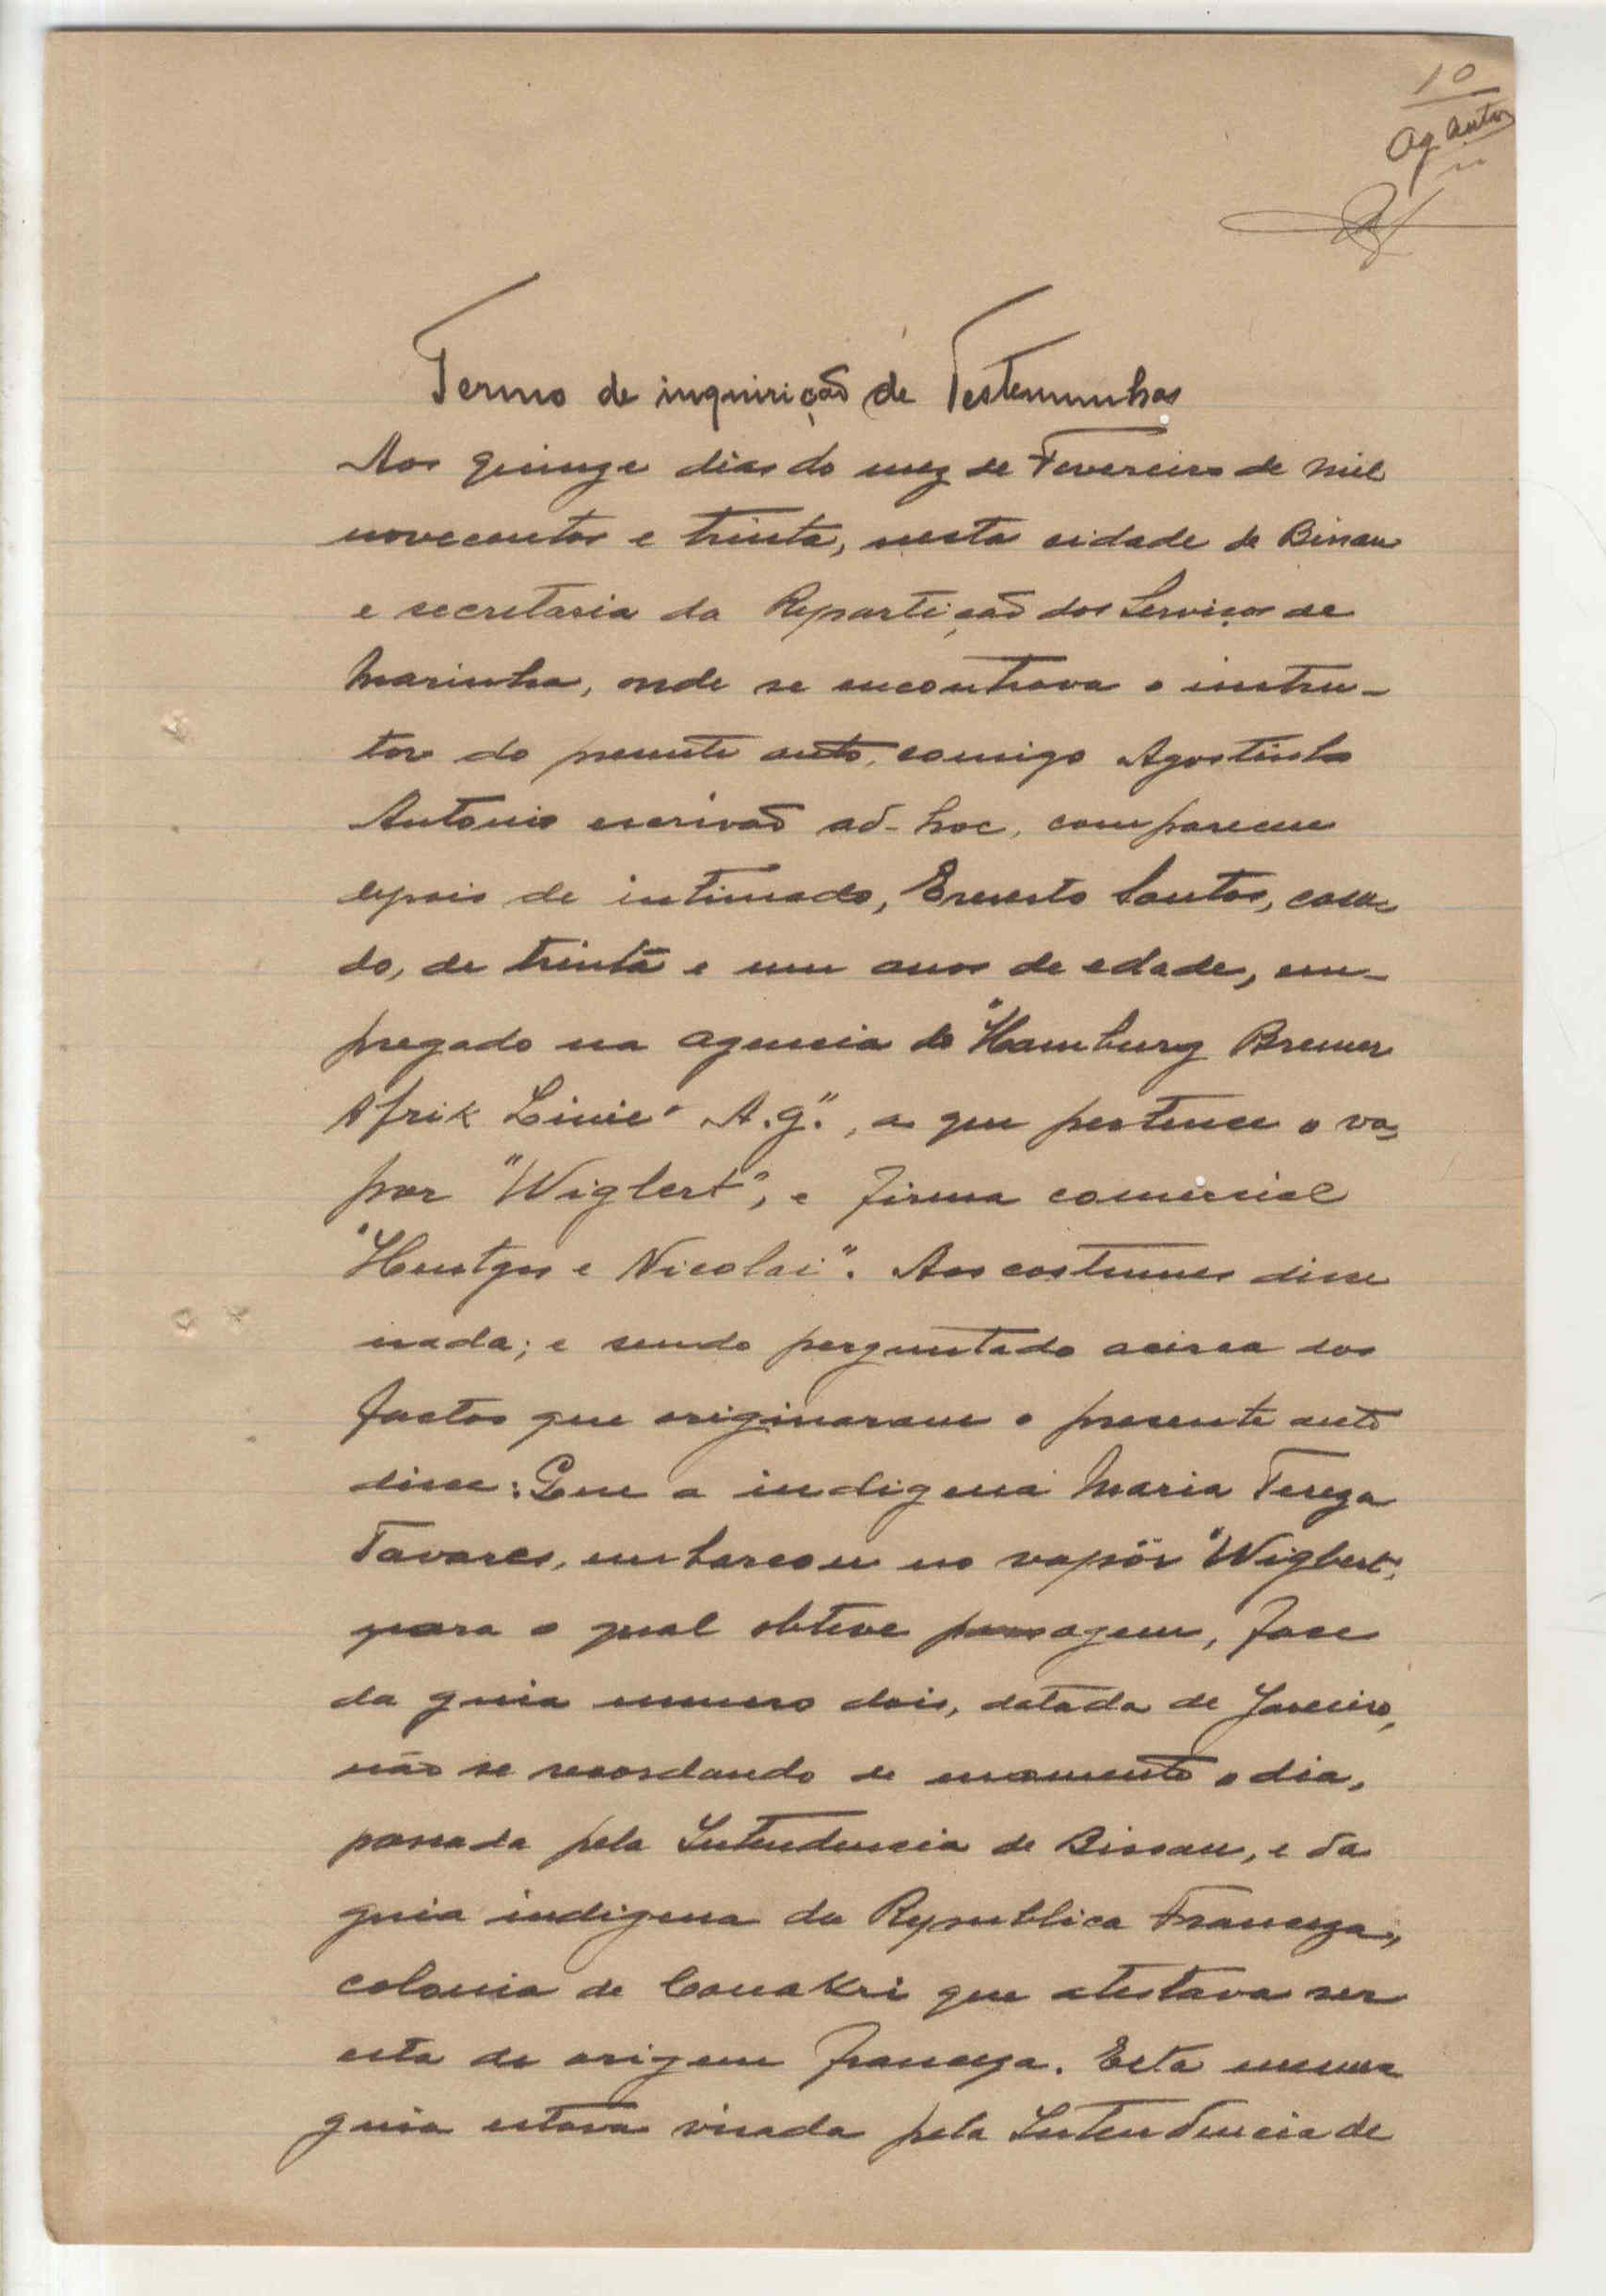 10
Ag. Anto
Termo de inquirição de Testemunhas
Aos quinze dias do mez de Fevereiro de mil
novecentos e trinta, nesta cidade de Bissau
e secretaria da Repartição dos Serviços de
Marinha, onde se encontrava o instru-
tor do presente auto, comigo Agostinho
Antonio escrivão ad-hoc, compareceu
depois de intimado, Ernesto Santos, casa-
do, de trinta e um anos de edade, em-
pregado na agencia da "Hamburg Bremer
Afrik Linie" A.G.", a que pertence o va-
por "Wigbert", e firma comercial
"Hentges e Nicolai". Aos costumes disse
nada; e sendo perguntado acerca dos
factos que originaram o presente auto
disse: Que a indigena Maria Tereza
Tavares, embarcou no vapôr "Wigbert",
para o qual obteve passagem, face
da guia numero dois, datada de Janeiro,
não se recordando de momento o dia,
passada pela Intendencia de Bissau, e da
guia indigena da Republica Franceza,
colonia de Conakri que atestava ser
esta de origem franceza. Esta mesma
guia estava visada pela Intendencia de